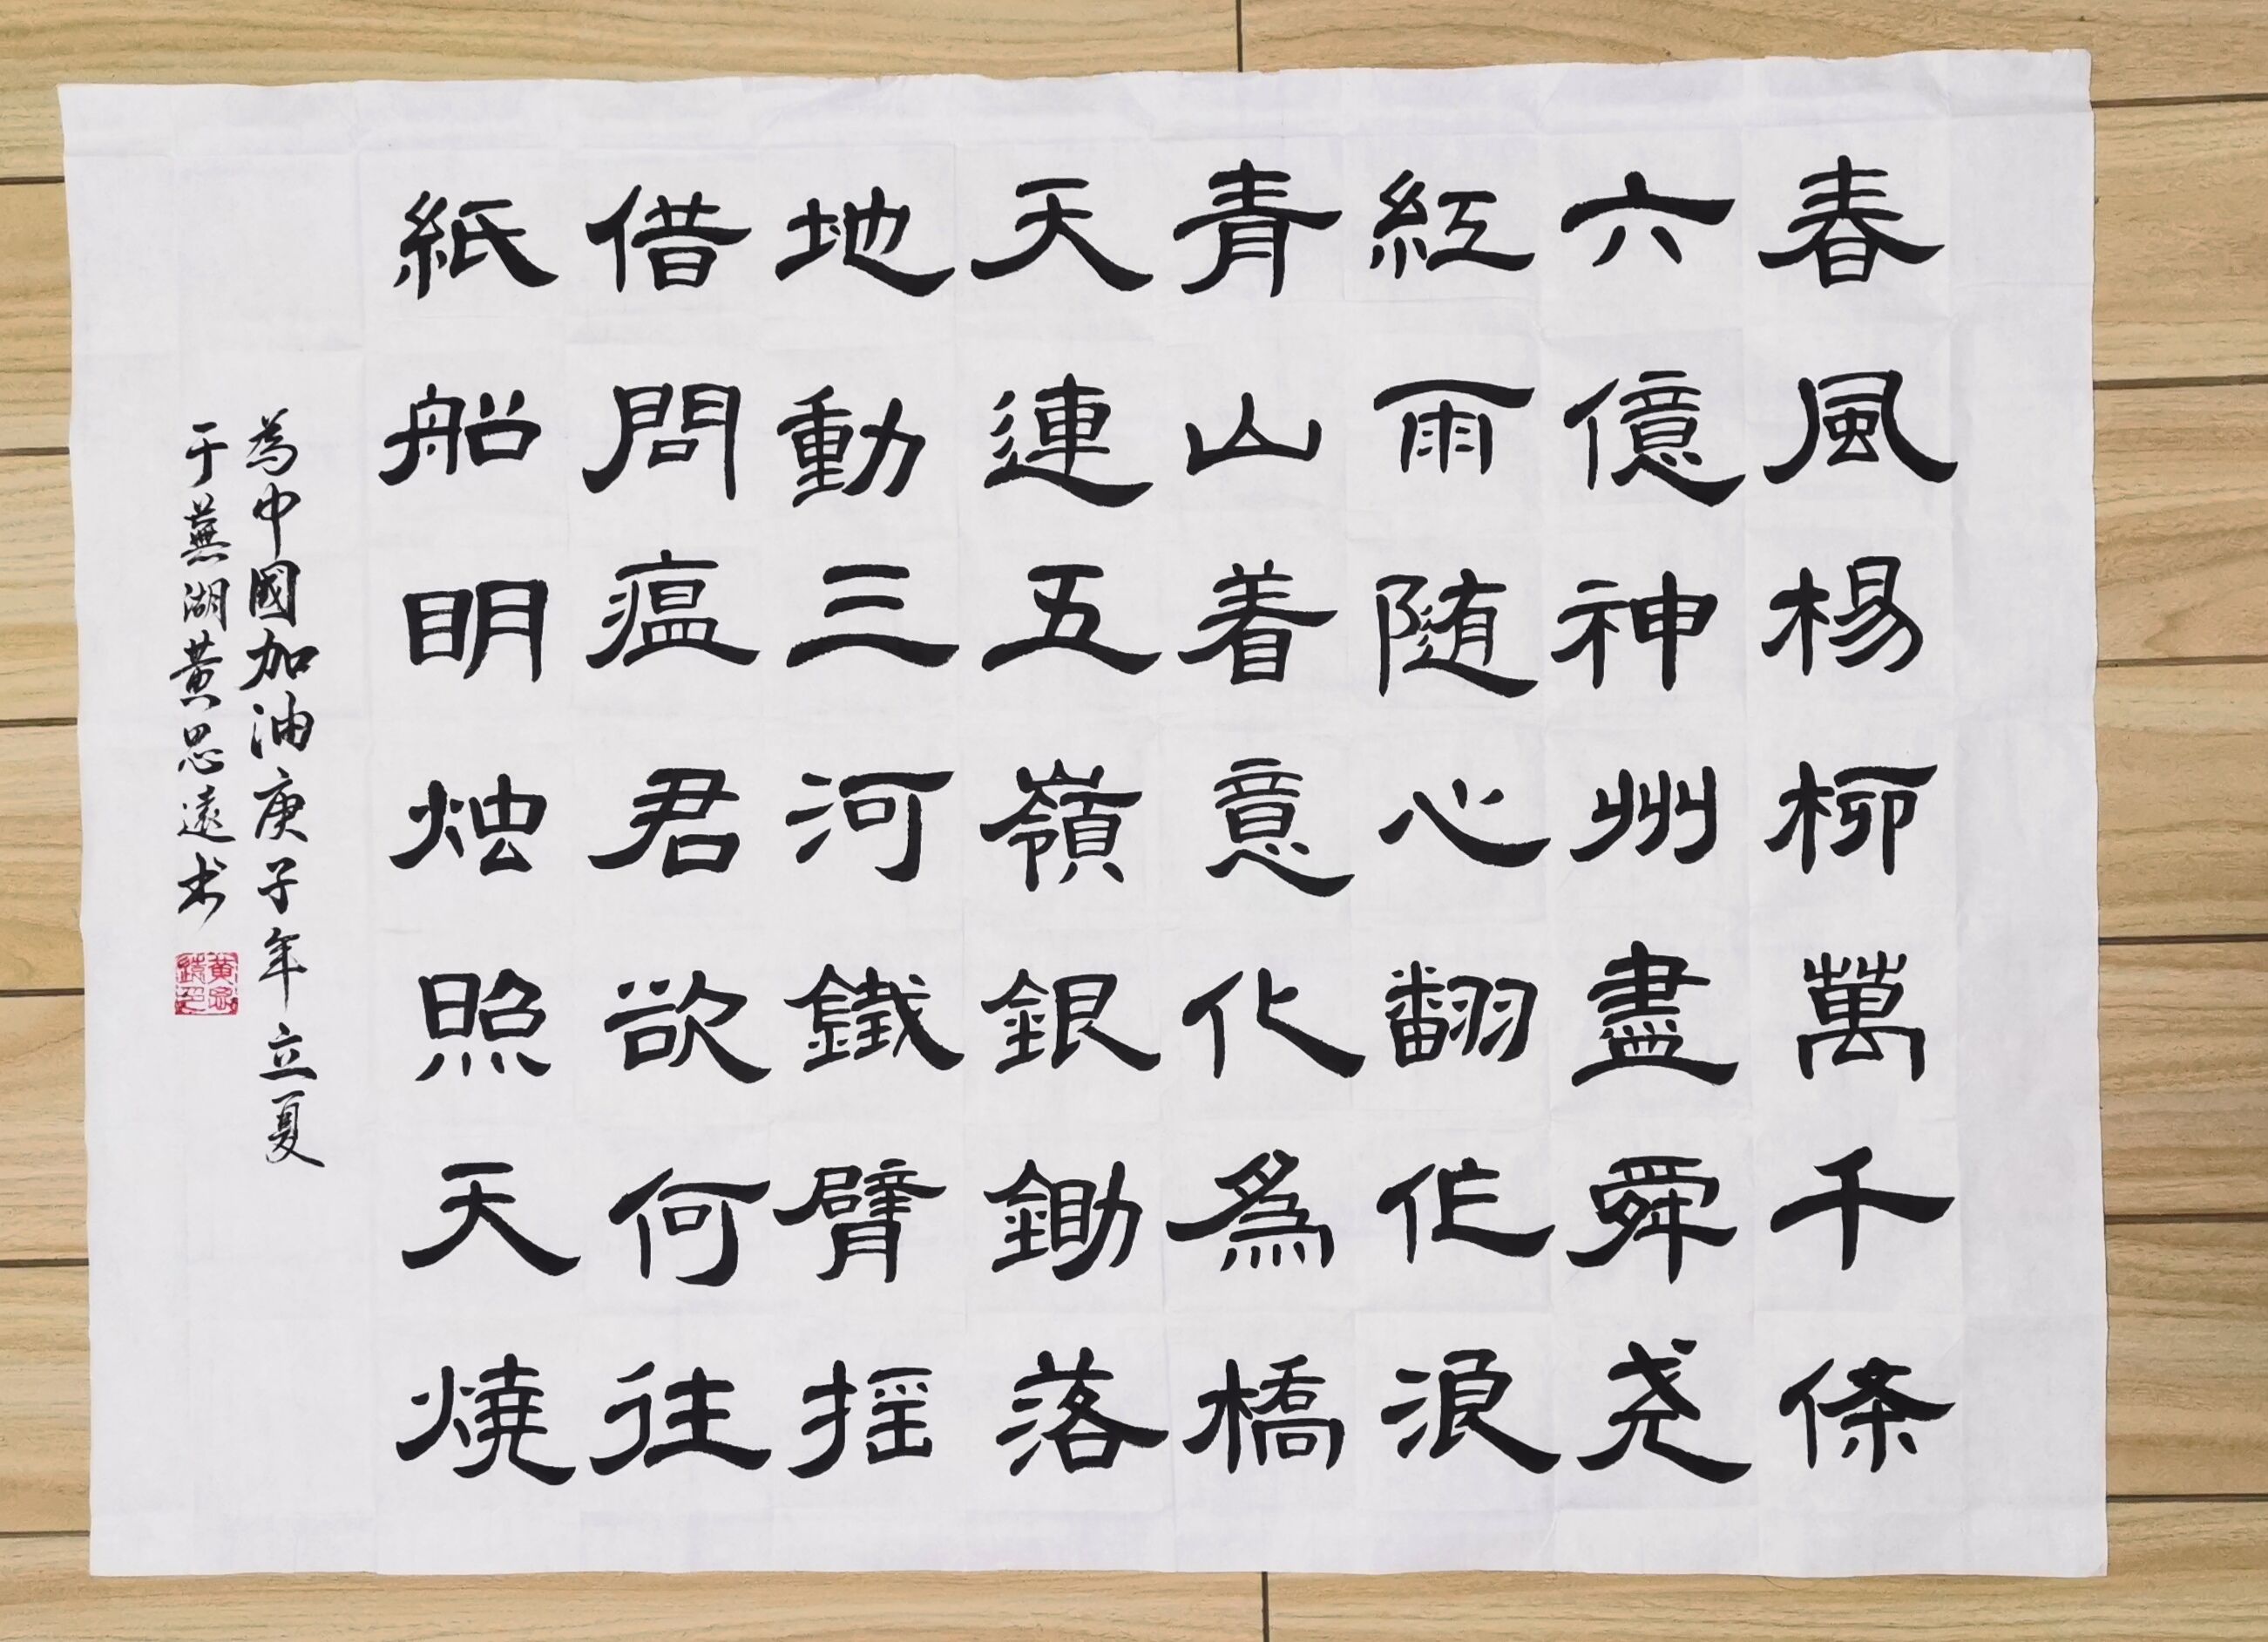 春風楊柳萬千條
六億神州盡舜尧
紅雨随心翻作浪
青山着意化為橋
天連五嶺銀鋤落
地動三河鐵臂摇
借問瘟君欲何往
紙船明烛照天燒
為中國加油庚子年立夏
于蕪湖黄思遠书
黄思
遠印